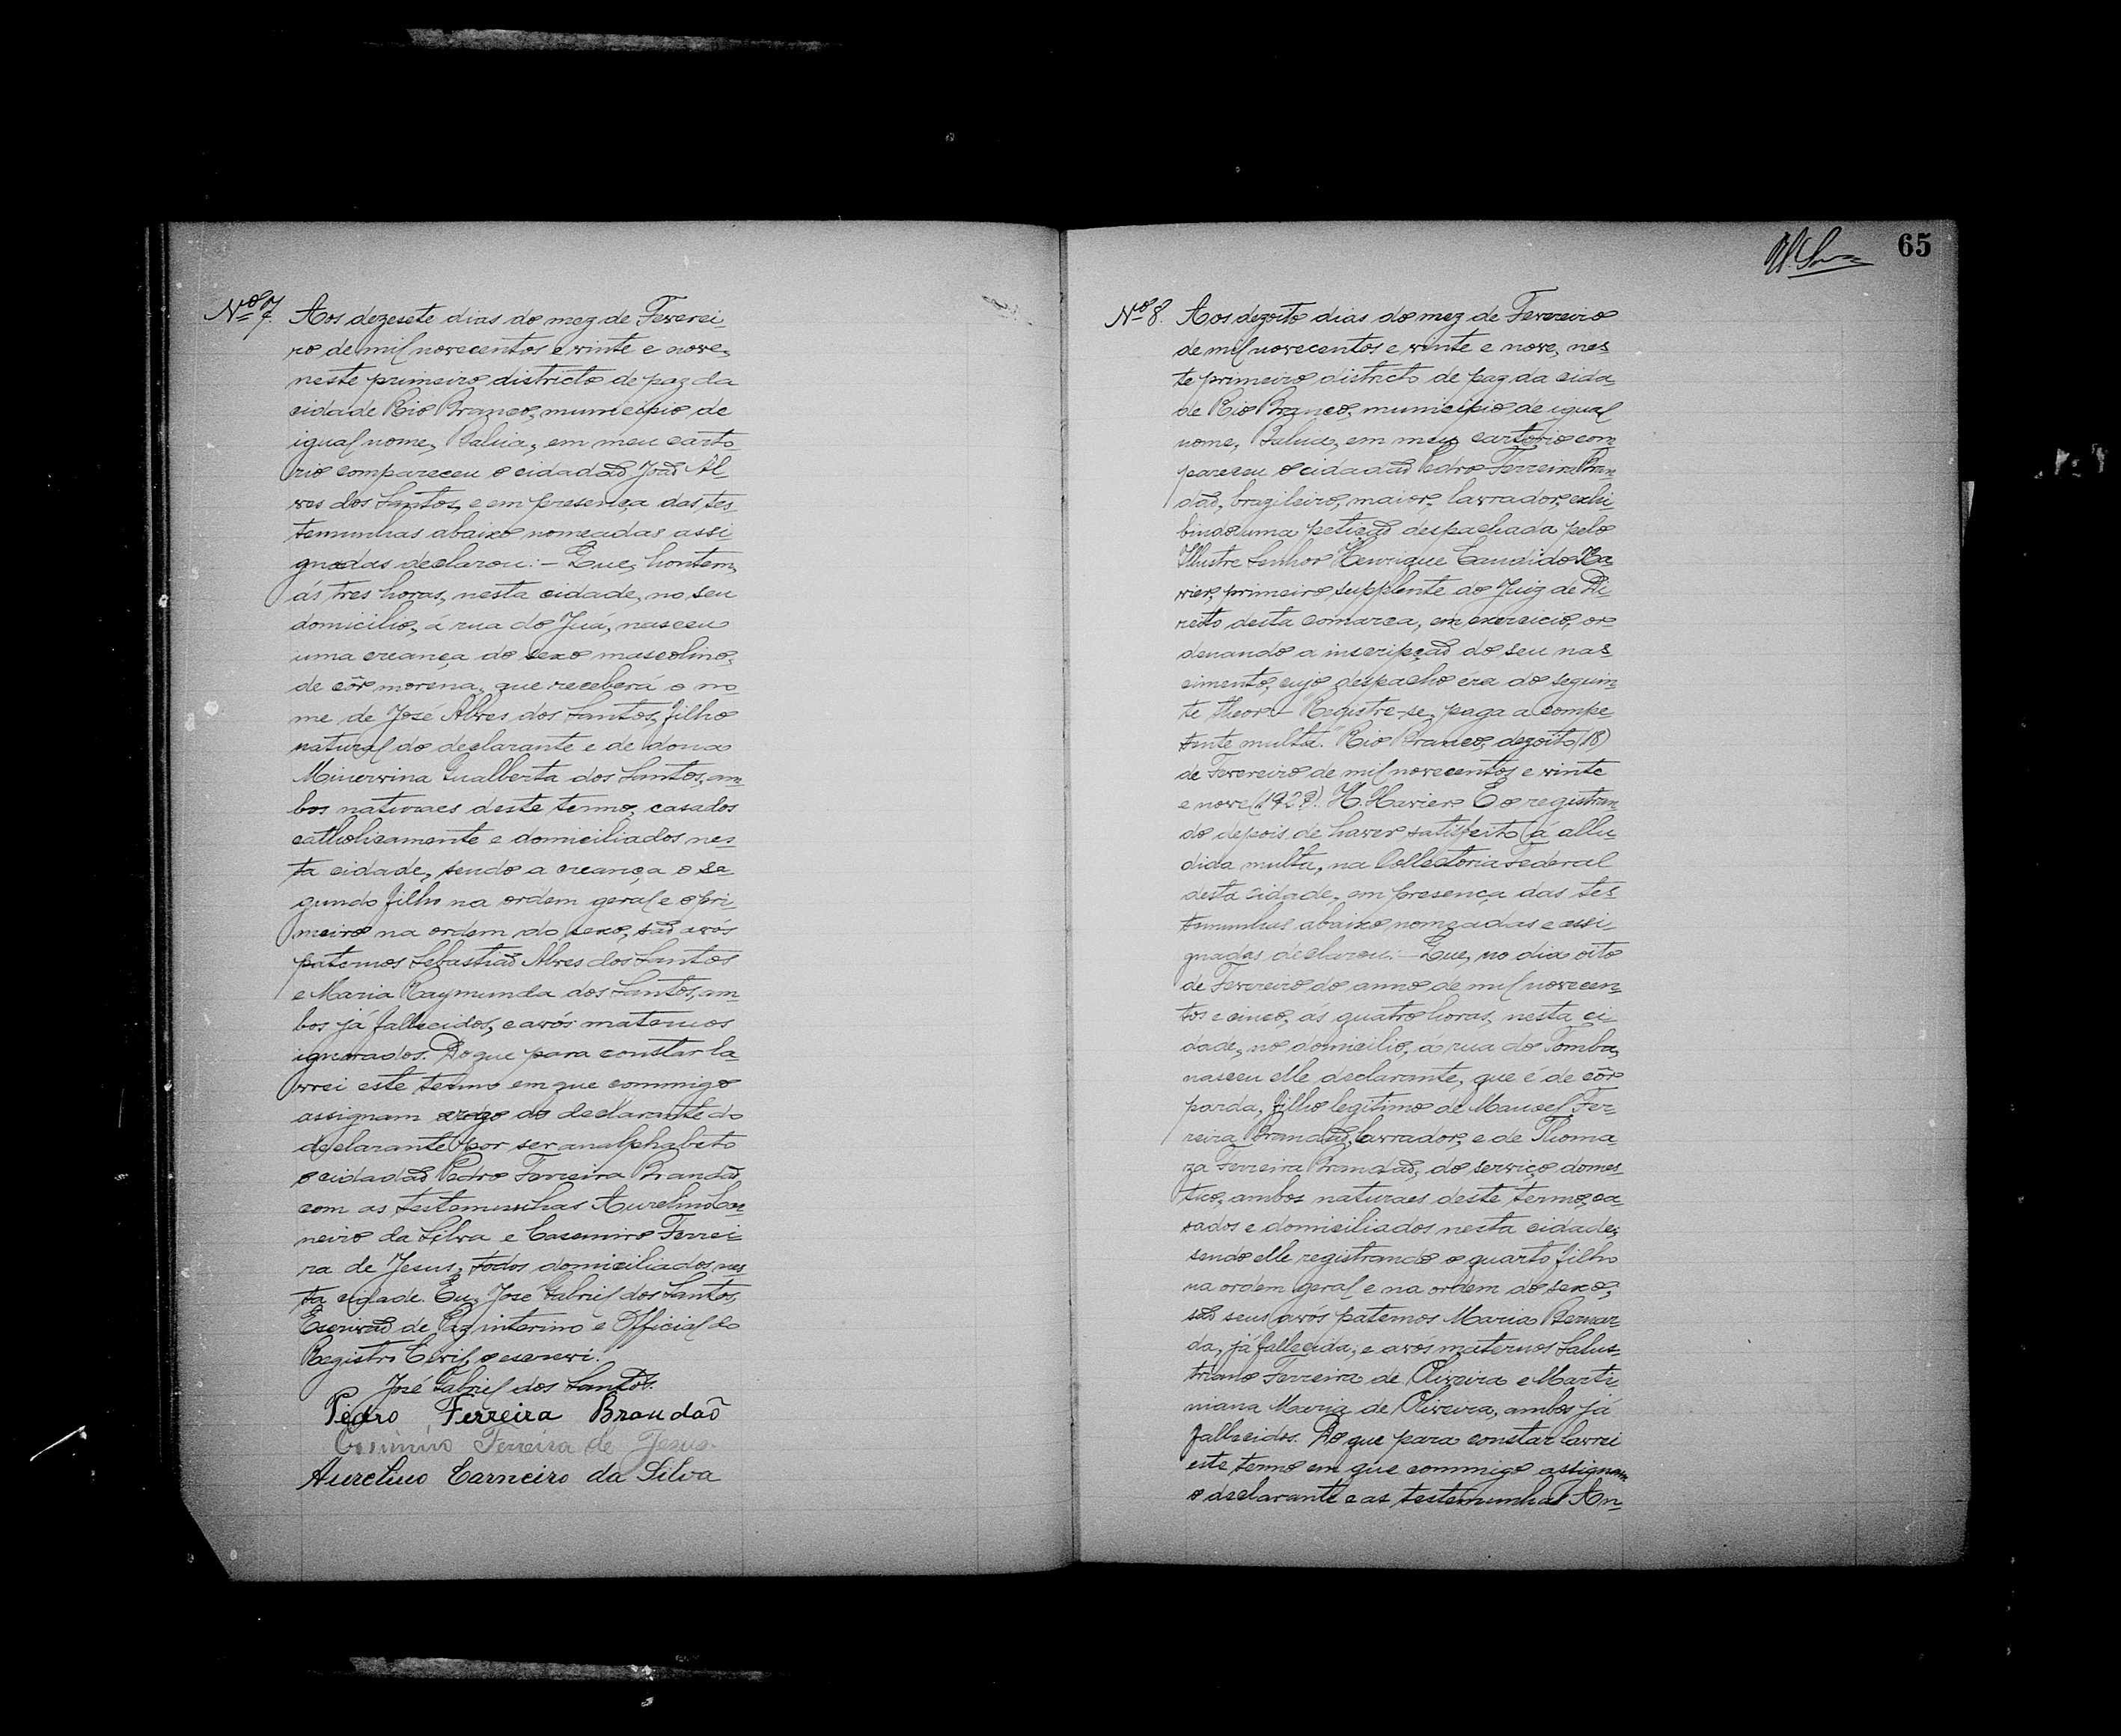 Nº 7. Aos dezesete dias do mez de Feverei-
ro de mil novecentos e vinte e nove,
neste primeiro districto de paz da
cidade Rio Branco, municipio de
igual nome, Bahia, em meu carto-
rio compareceu o cidadão João Al-
ves dos Santos, e em presença das tes-
temunhas abaixo nomeadas assi-
gnadas declarou:- Que, hontem,
ás tres horas, nesta cidade, no seu
domicilio, á rua do Juá, nasceu
uma creança do sexo mascolino,
de côr morena, que receberá o no-
me de José Alves dos Santos, filho
natural do declarante e de dona
Minervina Gualberta dos Santos, am-
bos naturaes deste termo, casados
catholicamente e domiciliados nes-
ta cidade, sendo a creança o se-
gundo filho na ordem geral e o pri-
meiro na ordem do sexo, são avós
paternos Sebastião Alves dos Santos
e Maria Raymunda dos Santos, am-
bos já fallecidos, e avós maternos
ignorados. Do que para constar la-
vrei este termo em que commigo
assignam arogo do declarante do
declarante por ser analphabeto
o cidadão Pedro Ferreira Brandão,
com as testemunhas Aurelino Car-
neiro da Silva e Casemiro Ferrei-
ra de Jesus, todos domiciliados nes-
ta cidade. Eu, José Gabriel dos Santos,
Escrivão de Paz interino e Official do
Registro Civil, o escrevi.
José Gabriel dos Santos.
Pedro Ferreira Brandaõ
Casimiro Ferreira de Jesus.
Aurelino Carneiro da Silva
65
Nº 8. Aos dezoito dias do mez de Fevereiro
de mil novecentos e vinte e nove, nes-
te primeiro districto de paz da cida-
de Rio Branco, municipio de igual
nome, Bahia, em meu cartorio com-
pareceu o cidadão Pedro Ferreira Bran-
dão, brazileiro, maior, lavrador, exhi-
bindo uma petição despachada pelo
Illustre Senhor Henrique Candido Xa-
vier, primeiro supplente do Juiz de Di-
reito desta comarca, em exercicio, or-
denando a inscripção do seu nas-
cimento, cujo despacho era do seguin-
te theor:- Registre-se, paga a compe-
tente multa. Rio Branco, dezoito (18)
de Fevereiro de mil novecentos e vinte
e nove (1929). H. Xavier. E o registran-
do depois de haver satisfeito a allu-
dida multa, na Collectoria Federal
desta cidade, em presença das tes-
temunhas abaixo nomeadas e assi-
gnadas declarou:- Que, no dia oito
de Fevereiro do anno de mil novecen-
tos e cinco, ás quatro horas, nesta ci-
dade, no domicilio, a rua do Tomba,
nasceu elle declarante, que é de côr
parda, filho legitimo de Manoel Fer-
reira Brandão, lavrador, e de Thoma-
za Ferreira Brandão, do serviço domes-
tico, ambos naturaes deste termo, ca-
sados e domiciliados nesta cidade,
sendo elle registrando o quarto filho
na ordem geral e na ordem do sexo;
são seus avós paternos Maria Bernar-
da, já fallecida, e avós maternos Salus-
triano Ferreira de Oliveira e Marti-
niana Maria de Oliveira, ambos já
fallecidos. Do que para constar lavrei
este termo em que commigo assignam
o declarante e as testemunhas An-